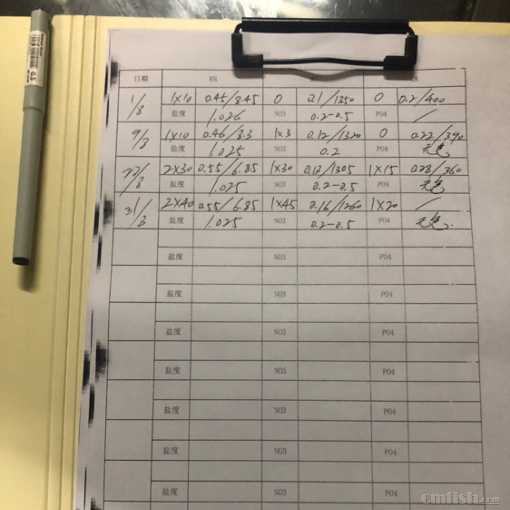 日期 KH
1/3 1×10 0.45/8.45 0 0.1/1350 0 0.2/400
盐度 1.026 NO3 0.2-0.5 PO4 /
9/3 1×10 0.46/8.3 1×3 0.12/1320 0 0.22/390
盐度 1.025 NO3 0.2 PO4 无色
22/3 2×30 0.55/6.85 1×30 0.12/1305 1×15 0.23/360
盐度 1.025 NO3 0.2-0.5 PO4 无色
31/3 2×40 0.55/6.85 1×45 0.16/1260 1×20 /
盐度 1.025 NO3 0.2-0.5 PO4 无色.
盐度 NO3 PO4
盐度 NO3 PO4
盐度 NO3 PO4
盐度 NO3 PO4
盐度 NO3 PO4
盐度 NO3 PO4
盐度 NO3 PO4
cmfish.com